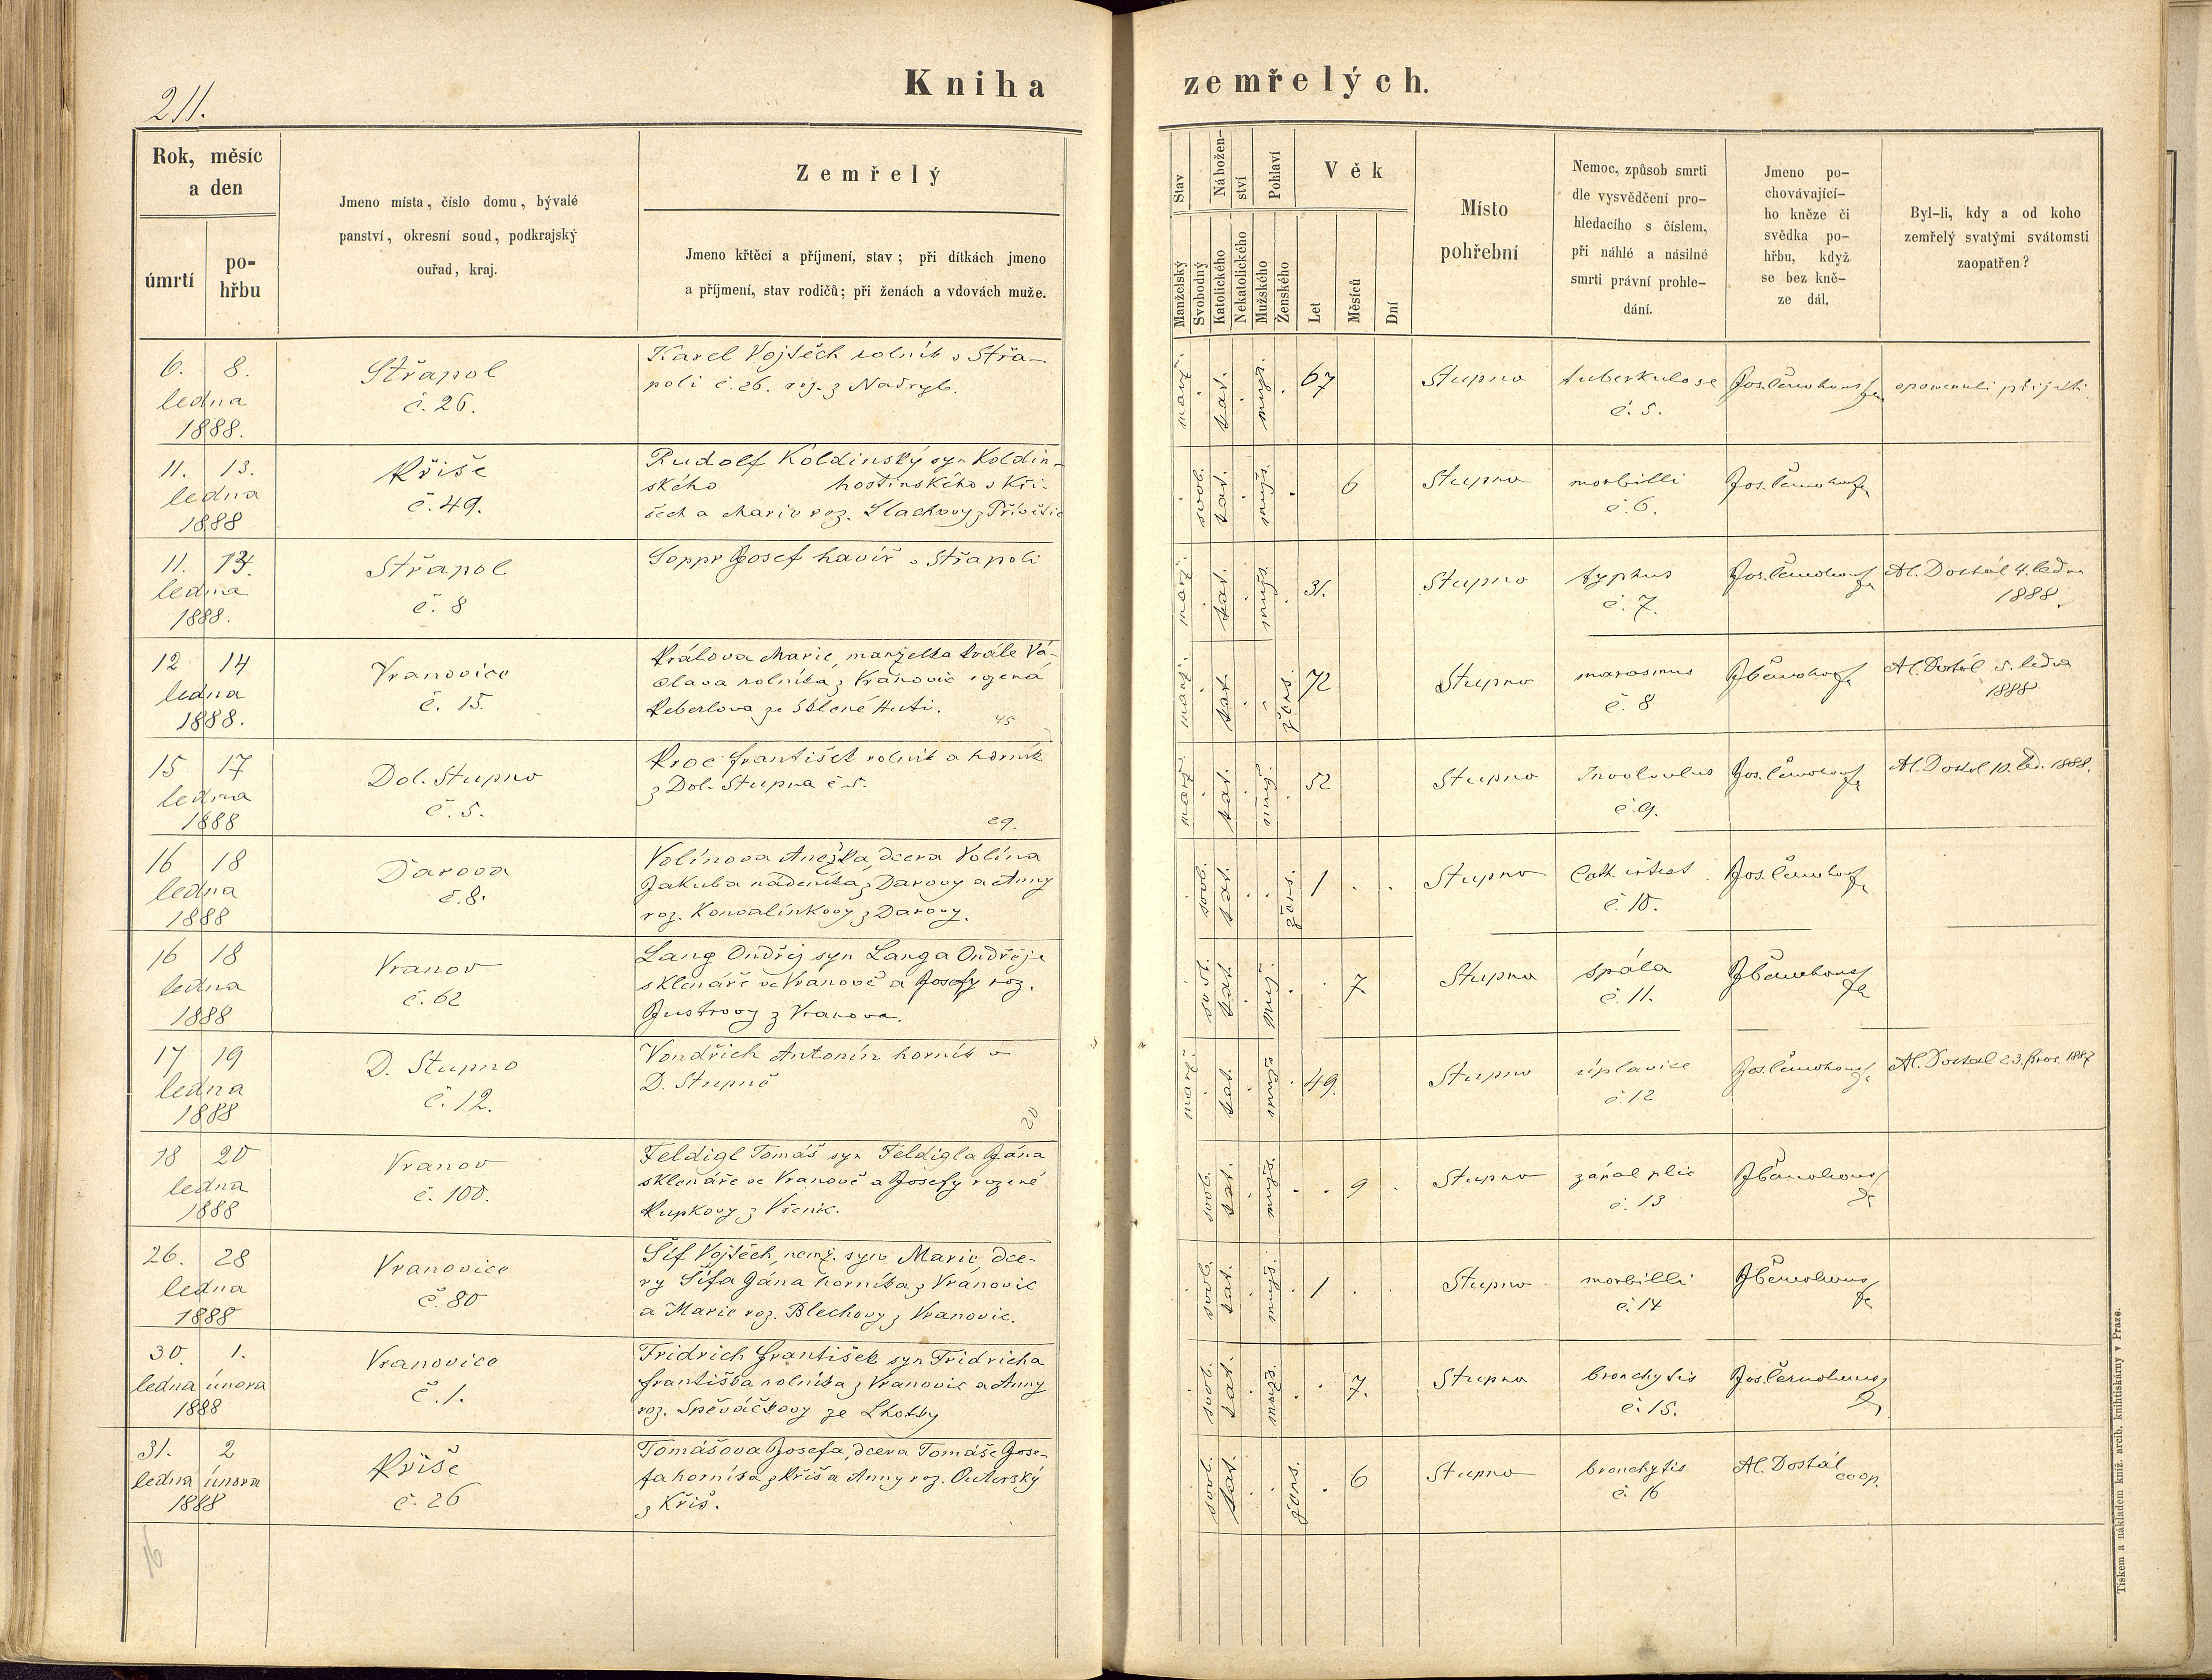 211.
Kniha zemřelých.
Rok, měsíc a den
úmrtí
po-
hřbu
Jmeno místa, číslo domu, bývalé
panství, okresní soud, podkrajský
ouřad, kraj.
Zemřelý
Jmeno křtěcí a příjmení, stav; při dítkách jmeno
a příjmení, stav rodičů; při ženách a vdovách muže.
Stav
Manželský
Svobodný
Nábožen-
ství
Katolického
Nekatolického
Pohlaví
Mužského
Ženského
Věk
Let
Měsíců
Dní
Místo
pohřební
Nemoc, způsob smrti
dle vysvědčení pro-
hledacího s číslem,
při náhlé a násilné
smrti právní prohle-
dání.
Jmeno po-
chovávající-
ho kněze či
svědka po-
hřbu, když
se bez kně-
ze dál.
Byl-li, kdy a od koho
zemřelý svatými svátomsti
zaopatřen?
6. 8.
ledna
1888.
Střapol
č. 26.
Karel Vojtěch rolník v Střa-
poli č. 26. roz. z Nadryb.
manž. kat. mužs. 67
Stupno
tuberkulose
č. 5.
opomenuli přijati.
11. 13.
ledna
1888
Kříše
č. 49.
Rudolf Koldinský syn Koldin-
ského hostinského v Kří-
ších a Marie roz.
svob. kat. mužs. 6
Stupno
morbilli
č. 6.
11. 13.
ledna
1888.
Střapol
č. 8
Josef havíř v Střapoli
manž. kat. mužs. 31.
Stupno
typhus
č. 7.
Al. Dostál 4. ledna
1888.
12 14
ledna
1888.
Vranovice
č. 15.
Králova Marie, manželka Krále Vá-
clava rolníka z Vranovic rozená
ze Sklené Huti.
45
manž. kat. žens. 72
Stupno
marasmus
č. 8
Al. Dostál 5. ledna
1888
15 17
ledna
1888
Dol. Stupno
č. 5.
Kroc František rolník a horník
z Dol. Stupna č 5.
29.
manž. kat. muž. 52
Stupno
č. 9.
Al. Dostál 10. led. 1888.
16 18
ledna
1888
Darova
č. 8.
Volínova Anežka, dcera Volína
Jakuba nádeníka z Darovy a Anny
roz. Konvalinkovy z Darovy.
svob. kat. žens. 1
Stupno
č. 10.
16 18
ledna
1888
Vranov
č. 62
Lang Ondřej syn Langa Ondřeje
sklenáře ve Vranově a Josefy roz.
Justrovy z Vranova.
kat. muž. 7.
Stupno
spála
č. 11.
17 19
ledna
1888
D. Stupno
č. 12.
Vondřich Antonín horník v
D. Stupně
20
manž. kat. muž 49.
Stupno
úplavice
č. 12
Al. Dostál 23. pros. 1887
18 20
ledna
1888
Vranov
č. 100.
Feldigl Tomáš syn Feldigla Jána
sklenáře ve Vranově a Josefy rozené
Kupkovy z Všenic.
svob. kat. mužs. 9
Stupno
zánal plic
č. 13
26. 28
ledna
1888
Vranovice
č. 80
Šíf Vojtěch, nemž. syn Marie, dce-
ry Šífa Jána horníka z Vranovic
a Marie roz. Blechovy z Vranovic.
svob. kat. mužs. 1
Stupno
morbilli
č. 14
30. 1.
ledna února
1888
Vranovice
č. 1.
Fridrich František syn Fridricha
Františka rolníka z Vranovic a Anny
roz. Spěváčkovy ze Lhotky
svob. kat. muž. 7.
Stupno
bronchytis
č. 15.
Jos. Černohous
31. 2
ledna února
1888
Kříše
č. 26
Tomášova Josefa, dcera Tomáše Jose-
fa horníka z Kříš a Anny roz.
z Kříš.
svob. kat. žens. 6
Stupno
bronchytis
č. 16
Al. Dostál
coop.
16
Tiskem a nákladem kníž. arcib. knihtiskárny v Praze.